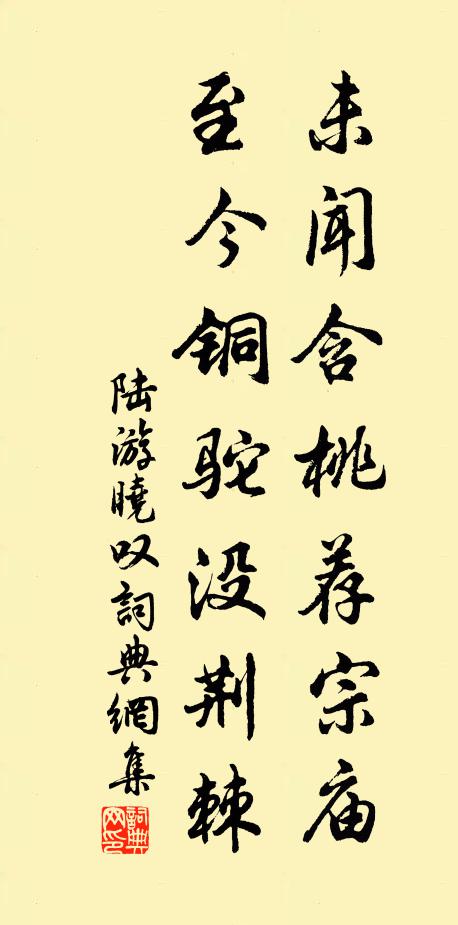 未闻含桃荐宗庙
至今铜驼没荆棘
陆游曉叹詞典網集
詞典网印